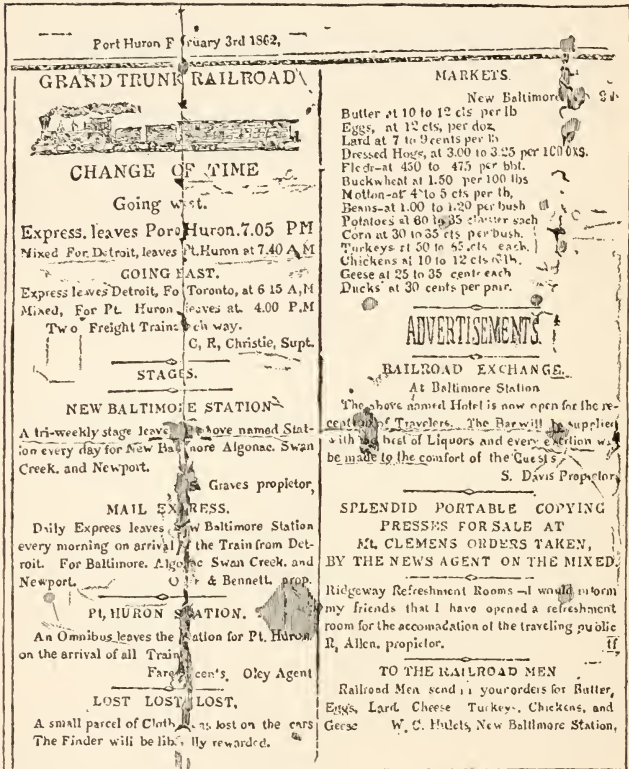 Port Huron F ruary 3rd 1862,
GRAND TRUNK RAILROAD
CHANGE OF TIME
Going west.
Express. leaves Port Huron. 7.05 PM
Mixed For. Detroit, leaves Pt. Huron at 7.40 A,M
GOING EAST.
Express leaves Detroit, For Toronto, at 6 15 A,M
Mixed, For Pt. Huron leaves at. 4.00 P.M
Two Freight Trains each way.
C, R, Christie, Supt.
STAGES.
NEW BALTIMORE STATION
A tri-weekly stage leaves above named Stat-
ion every day for New Baltimore Algonac. Swan
Creek. and Newport.
S Graves propietor,
MAIL EXPRESS.
Daily Exprees leaves New Baltimore Station
every morning on arrival of the Train from Det-
roit. For Baltimore. Algonac Swan Creek. and
Newport. & Bennett. prop.
Pt, HURON STATION.
An Omnibus leaves the station for Pt. Huron
on the arrival of all Train
Fare cen's, Oley Agent
LOST LOST LOST,
A small parcel of Cloth was lost on the cars
The Finder will be libe lly rewarded.
MARKETS.
New Baltimore
Butter at 10 to 12 cts per lb
Eggs, at 12 cts, per doz
Lard at 7 to 9 cents per lb
Dressed Hogs, at 3.00 to 3.25 per 100 lbs.
at 450 to 475 per bbl.
Buckwheat at 1.50 per 100 lbs
Mutton-at 4 to 5 cts per lb,
Beans-at 1.00 to 1.20 per bush
Potatoes at to 35
Corn at 30 to 35 cts per bush.
Turkeys at 50 to 65 cts each.
Chickens at 10 to 12 cts
Geese at 25 to 35 cents each
Ducks at 30 cents per pair.
ADVERTISEMENTS.
RAILROAD EXCHANGE.
At Baltimore Station
The above named Hotel is now open for the re-
ception of Travelers. The Bar will be supplied
with the best of Liquors and every will
be made to the comfort of the Guests
S. Davis Propietor
SPLENDID PORTABLE COPYING
PRESSES FOR SALE AT
Mt, CLEMENS ORDERS TAKEN,
BY THE NEWS AGENT ON THE MIXED.
Ridgeway Refreshment Rooms—I would inform
my friends that I have opened a refreshment
room for the accomadation of the traveling public
R, Allen, propietor. tf
TO THE RAILROAD MEN
Railroad Men send in your orders for Butter,
Eggs, Lard, Cheese Turkeys, Chickens, and
Geese W. C. Hulets, New Baltimore Station,